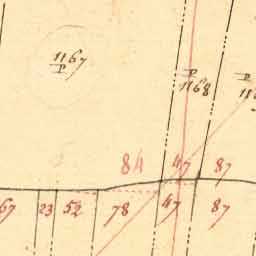 1167
P
P
1168
P
84 47 87
67 23 52 78 47 87